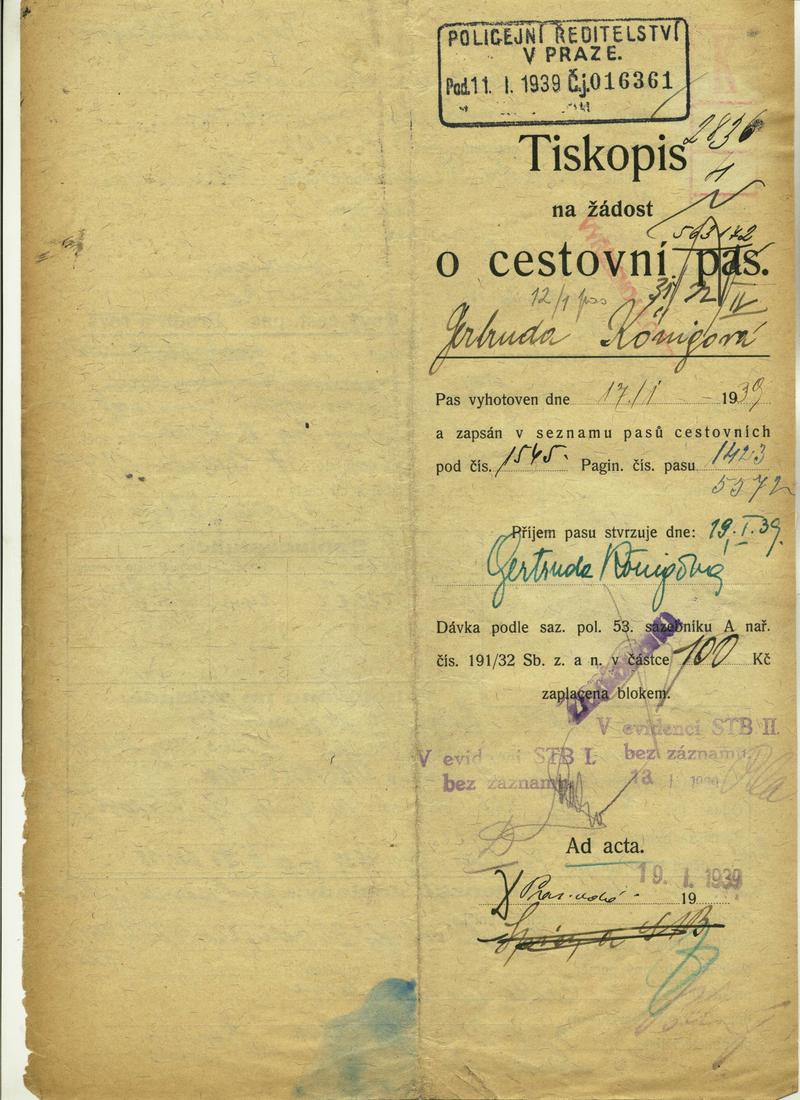 POLICEJNÍ ŘEDITELSTVÍ
V PRAZE.
Pod. 11. I. 1939 Č.j. 016361
2836
Tiskopis
na žádost
o cestovní pas.
12/1 pas
Gertruda Königová
Pas vyhotoven dne 17./I 1939
a zapsán v seznamu pasů cestovních
pod čís. 1545. Pagin. čís. pasu 1423
5572
Příjem pasu stvrzuje dne: 19.I.39.
Gertruda Königová
Dávka podle saz. pol. 53. sazebníku A nař.
čís. 191/32 Sb. z. a n. v částce 100 Kč
zaplacena blokem.
V evidenci STB II.
bez záznamu.
13 I
V evidenci STB I.
bez záznamu
Ad acta.
19. I. 1939
19